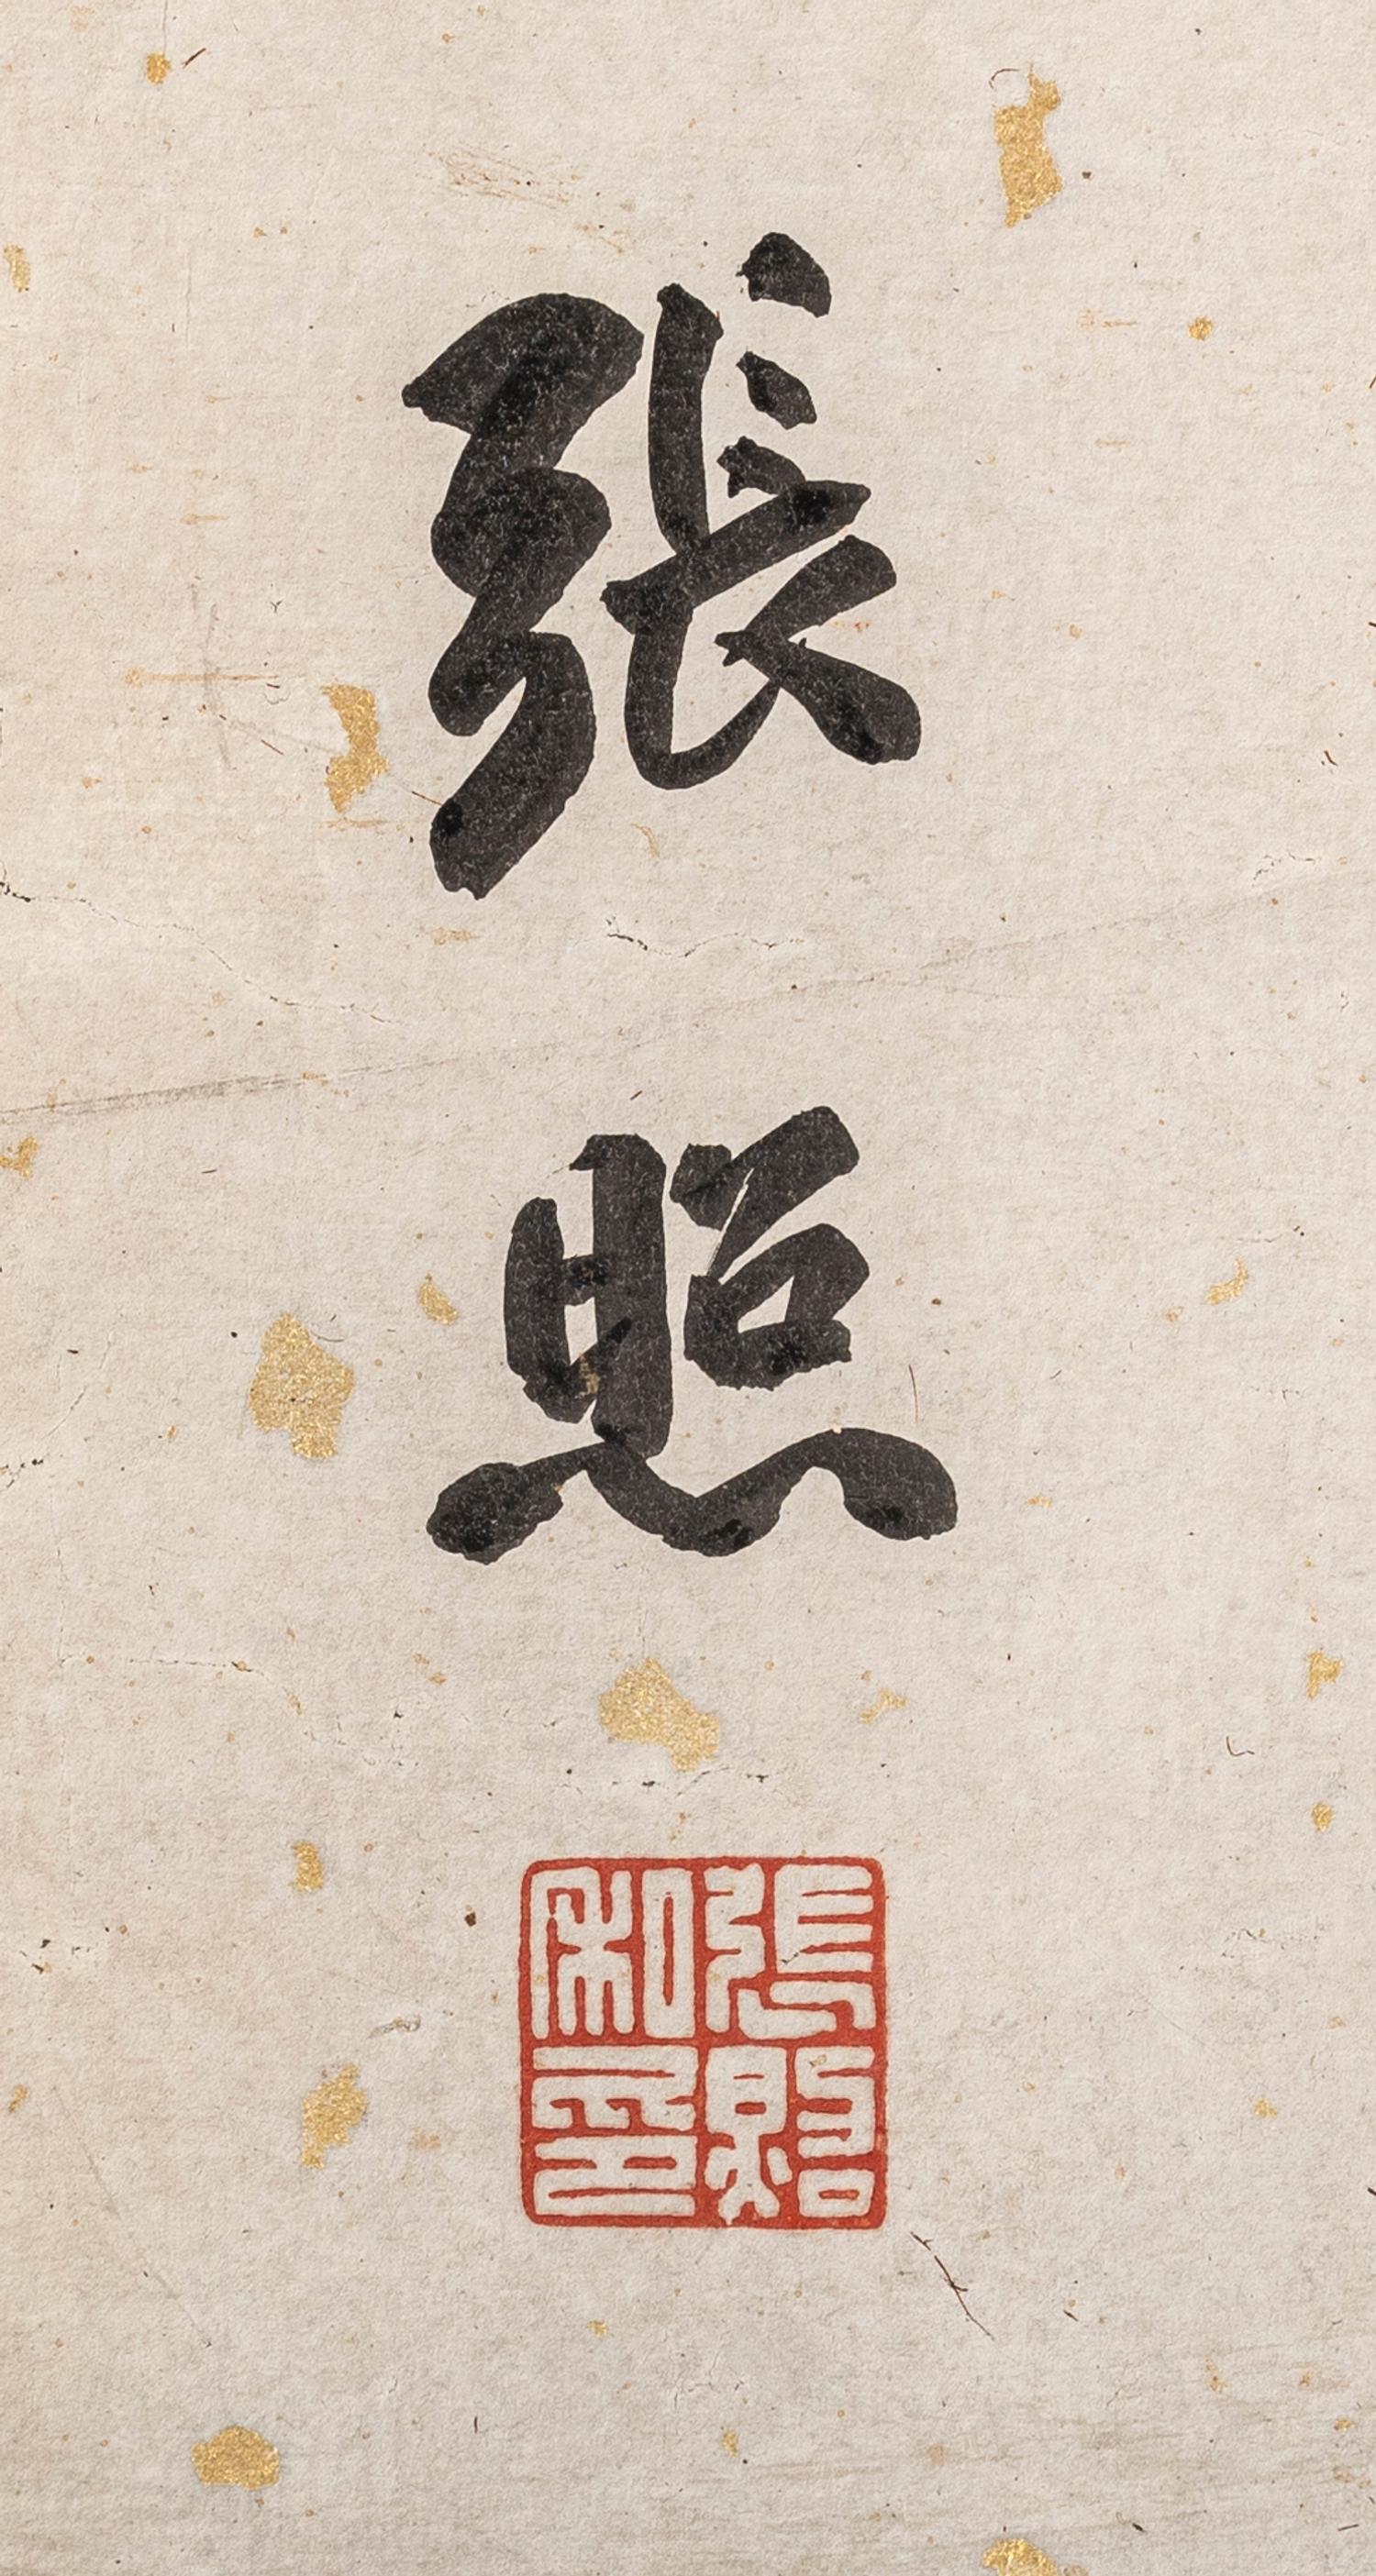 張照
張照
私印